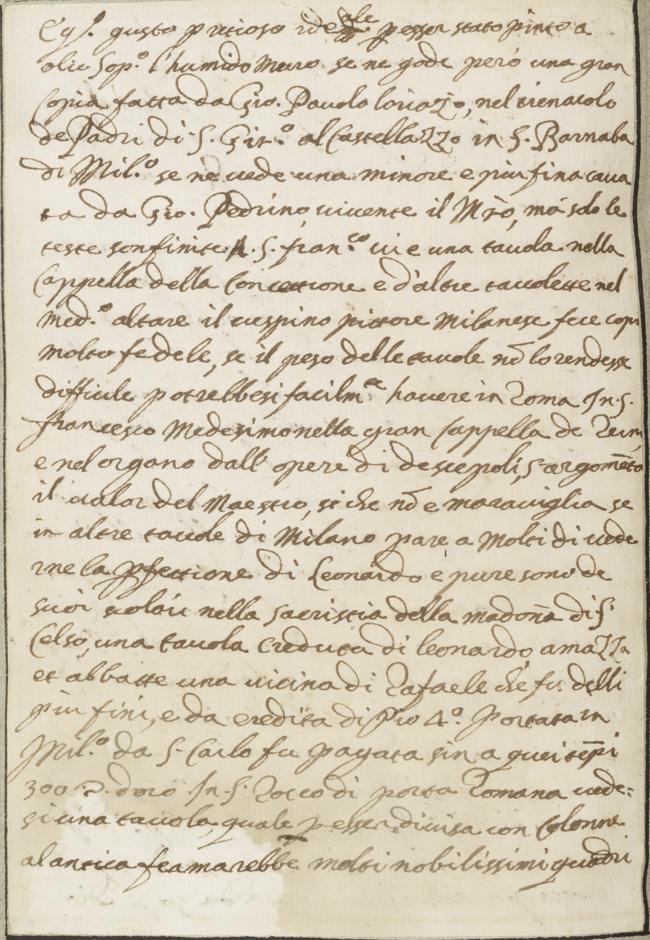 gusto pretioso per esser stato pinto a
olio sop.º l'humido Muro se ne gode però una gran
Copia fatta da Gio. Pavolo loriazo, nel cienacolo
de Padri di S. Gir.º al CastellaZZo in S. Barnaba
di Mil.º se ne vede una minore e piu fina cava
ta da Gio. Pedrino, vivente il Mro, má solo le
teste son finite A. S. fran.co vi e una tavola nella
Cappella della Concettione e d'altre tavolette nel
med.º altare il vespino pittore Milanese fece copi
molto fedele, se il peso delle tavole nō lo rendesse
difficile potrebbesi facilm.te havere in Roma In S.
francesco Medesimo nella gran Cappella de
e nel organo dall' opere di descepoli, s'argomēta
il valor del Maestro, si che nō e maraviglia se
in altre tavole di Milano pare a Molti di vede
rne la pfettione di Leonardo e pure sono de
suoi scolari nella sacristia della madoña di S.
Celso, una tavola creduta di leonardo amaZZa
et abbatte una vicina di Rafaele che fu delli
piu fini, e da eredità di Pio 4.º Portata in
Mil.º da S. Carlo fu pagata sin a quei tēpi
300 d'oro In S. Rocco di porta Romana vede-
si una tavola quale p esser divisa con Colonne
al antica feamarebbe molti nobilissimi quadri